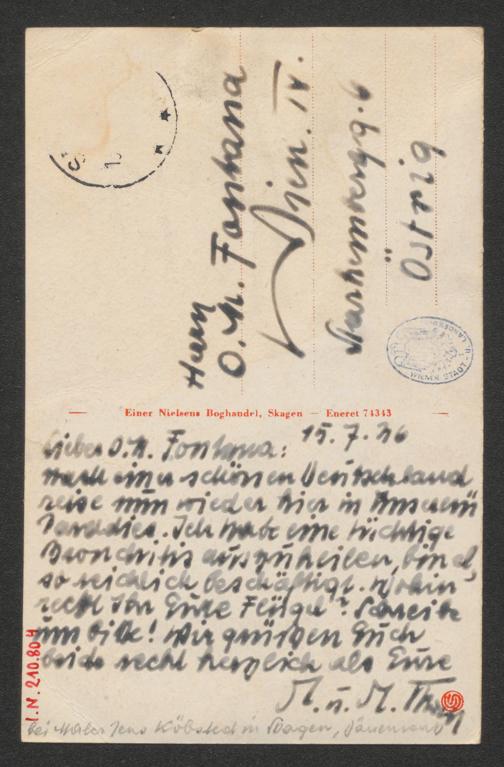 Herrn
O. M. Fontana
Wien. IV.
Starhembergg. 6
Östrig
WIENER STADT-
Einer Nielsens Boghandel, Skagen — Eneret 74343
15.7.36
Lieber O. M. Fontana:
nach einer schönen Deutschland
reise nun wieder hier in unserem
Paradies. Ich habe eine tüchtige
Bronchitis auszuheilen, bin al
so reichlich beschäftigt. Wohin
reckt Ihr Eure Flügel? Schreibe
nun bitte! Wir grüßen Euch
beide recht herzlich als Eure
M. u. M.
I.N. 210.804
bei Maler Jens Köbsted in Skagen, Dänemark